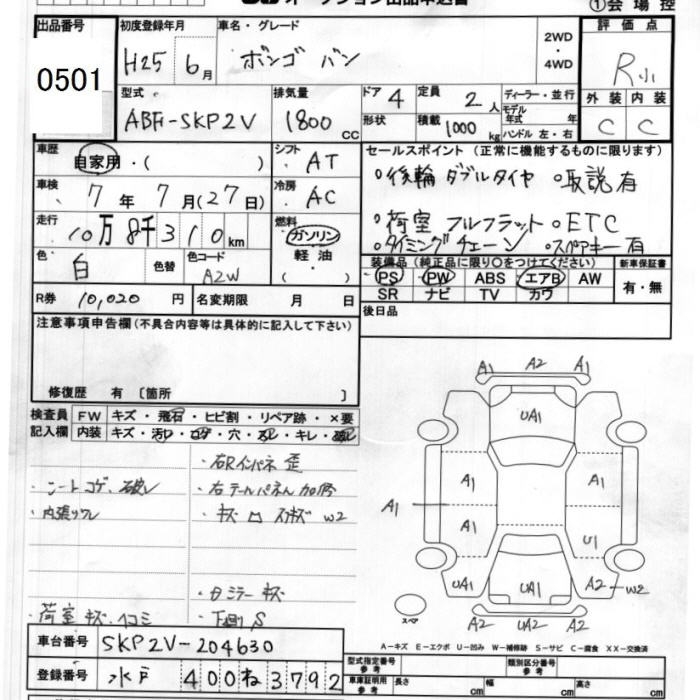 オークション出品申込書
①会場控
出品番号 初度登録年月 車名・グレード 2WD・4WD 評価点
0501 H25年6月 ボンゴ バン R小
型式 排気量 ドア 4 定員 2人 ディーラー・並行 外装 内装
ABF-SKP2V 1800cc 形状 積載 1000kg モデル年式 年 ハンドル 左・右 C C
車歴 自家用・( ) シフト AT セールスポイント(正常に機能するものに限ります)
車検 7年7月(27日) 冷房 AC ○後輪 ダブルタイヤ ○取説有
走行 10万8千310km 燃料 ガソリン 軽油 ( ) ○荷室 フルフラット ○ETC
○タイミングチェーン ○スペアキー有
色 白 色替 色コード A2W
装備品(純正品に限り○をつけてください) 新車保証書
PS PW ABS エアB AW 有・無
SR ナビ TV カワ
R券 10,020円 名変期限 月 日 後日品
注意事項申告欄(不具合内容等は具体的に記入して下さい)
修復歴 有 〔箇所 〕
検査員記入欄 FW キズ・飛石・ヒビ割・リペア跡・×要
内装 キズ・汚れ・コゲ・穴・スレ・キレ・破レ
・右Rインパネ 歪
・シートコゲ、破レ ・右テールパネル 加修
・内張ワレ ・キズ
W2
・ミラー キズ
・荷室 キズ、ヘコミ ・下回り S
A1 A2 A1
UA1
A1 A1
A1 A1 A1
U1
UA1 UA1 A2 W2
スペア A2 UA2 A2
A-キズ E-エクボ U-凹み W-補修跡 S-サビ C-腐食 XX-交換済
車台番号 SKP2V-204630
登録番号 水戸 400 ね 3792
型式指定番号 参考 類別区分番号 参考
車庫証明用 参考 長さ cm 幅 cm 高さ cm